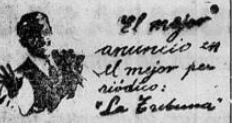 "El mejor"
anuncio en
el mejor per
riódico:
"La Tribuna"